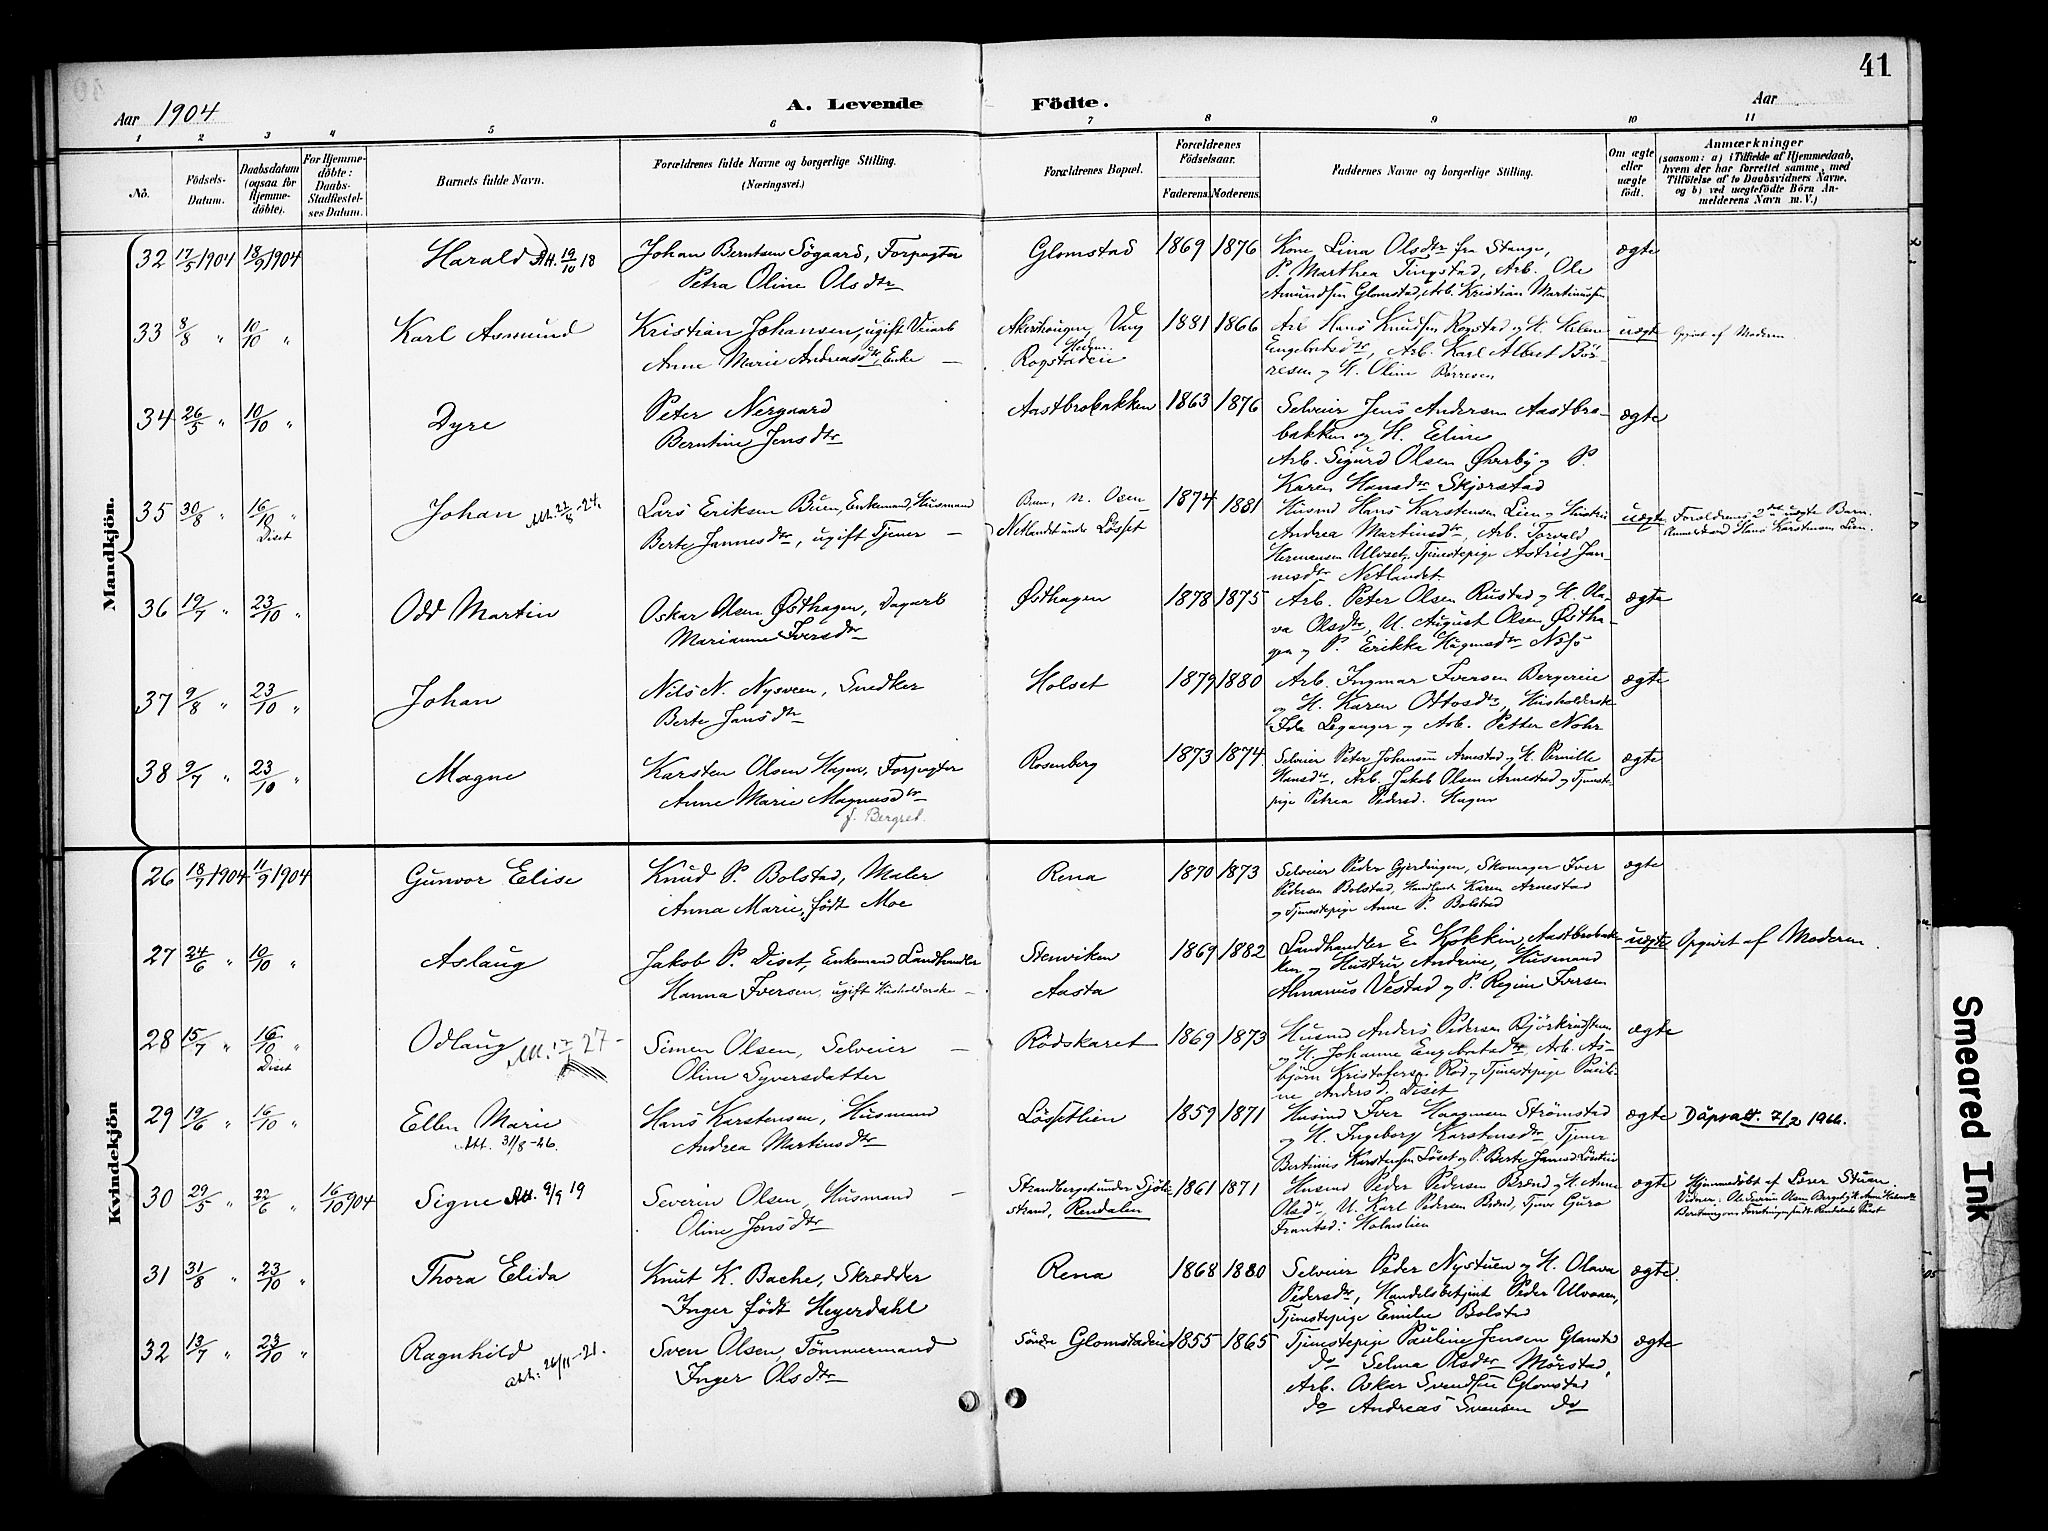 41
Aar 1904
A. Levende Födte.
Aar
1 2 3 4 5 6 7 8 9 10 11
No.
Födsels-Datum.
Daabsdatum (ogsaa for Hjemmedöbte).
For Hjemmedöbte: Daabs-Stadfestelses Datum.
Barnets fulde Navn.
Forældrenes fulde Navne og borgerlige Stilling. (Næringsvei.)
Forældrenes Bopæl.
Forældrenes Födselsaar.
Faderens. Moderens.
Faddernes Navne og borgerlige Stilling.
Om ægte eller uægte födt.
Anmærkninger
(saasom: a) i Tilfælde af Hjemmedaab, hvem der har forrettet samme, med Tilföielse af to Daabsvidners Navne, og b) ved uægtefödte Börn Anmelderens Navn m. V.)
Mandkjön.
32 17/5 1904 18/9 1904 Harald Att. 19/10 18 Johan Berntsen Sögaard, Forpagter Glomstad 1869 1876 Kone Lina Olsdtr fra Stange, ægte
Petra Oline Olsdtr P. Marthea Tingstad, Arb. Ole
Amundsen Glomstad, Arb. Kristian Martinussen
33 8/8 " 10/10 " Karl Asmund Kristian Johansen, ugift Veiarb Akershaugen Vang 1881 1866 Arb Hans Knudsen Rogstad og H. Helene uægte Opgivet af Moderen
Hedm.
Anne Marie Andreasdtr, Enke — Rogstadeie Engebretsdtr, Arb. Karl Albert Bör-
resen og H. Oline Börresen
34 26/5 " 10/10 " Dyre Peter Nergaard Aastbrobakken 1863 1876 Selveier Jens Andersen Aastbro- ægte
Berntine Jensdtr bakken og H. Eline
Arb. Sigurd Olsen Øverby og P.
Karen Hansdtr Skjerstad
35 30/8 " 16/10 " Diset Johan Lars Eriksen Buen, Enkemand, Husmand Buen, N. Osen 1874 1881 Husmd Hans Karstensen Lien og Hustru uægte Forældrenes 2det uægte Barn.
Berte Jannesdtr, ugift Tjener — Netlandet under Lösset Andrea Martinsdtr, Arb. Torvald Anmelder Hans Karstensen Lien
Hermansen Ulvset, Tjenestepige Astrid Jan-
nesdtr Netlandet
36 19/7 " 23/10 " Odd Martin Oskar Olsen Østhagen, Dagarb Østhagen 1878 1875 Arb. Peter Olsen Rustad og H. Ola- ægte
Marianne Iversdtr va Olsdtr, U. August Olsen Østha-
gen og P. Erikka
37 9/8 " 23/10 " Johan Nils N. Nysveen, Snedker Holset 1879 1880 Arb. Ingmar Iversen Bergereie ægte
Berte Jansdtr og H. Karen Ottosdtr, Husholderske
Ida Leganger og Arb. Petter Nohr
38 9/7 " 23/10 " Magne Karsten Olsen Hagen, Forpagter Rosenberg 1873 1874 Selveier Peter Johansen Arnestad og H. Pernille ægte
Anne Marie Magnusdtr Hansdtr, Arb. Jakob Olsen Arnestad og Tjeneste-
f. Bergset. pige Petrea Pedersd. Hagen
Kvindekjön
26 18/7 1904 11/9 1904 Gunvor Elise Knud P. Bolstad, Maler Rena 1870 1873 Selveier Peder Gjerdingen, Skomager Iver ægte
Anna Marie, födt Moe Pedersen Bolstad, Karen Arnestad
og Tjenestepige Anne P. Bolstad
27 24/6 " 10/10 " Aslaug Jakob P. Diset, Enkemand Landhandler Stenviken 1869 1882 Landhandler E. Kjøkkin, Aastbrobak- uægte Opgivet af Moderen.
Hanna Iversen, ugift Husholderske — Aasta ken og Hustru Andrine, Husmand
Almanus Vestad og P. Regine Iversen
28 15/7 " 16/10 " Diset Odlaug Simen Olsen, Selveier — Rödskaret 1869 1873 Husmd Anders Pedersen ægte
Oline Syversdatter og H. Johanne Engebretsdtr, Arb. As-
björn Kristofersen Röd og Tjenestepige Pauli-
ne Andersd. Diset
29 19/6 " 16/10 " Ellen Marie Hans Karstensen, Husmand Lössetlien 1859 1871 Husmd Iver Haagensen Strömstad ægte Dåpsatt. 7/2 1966.
Att. 31/8-46. Andrea Martinsdtr og H. Ingeborg Karstensdtr, Tjener
Bertinius Karstensen Löset og P. Berte Jannesd Lössetlien
30 29/5 " 22/6 " 16/10 904 Signe Att. 9/9 19 Severin Olsen, Husmand — Strandberget under Sjöli- 1861 1871 Husmd Peder Pedersen Brend og H. Anne ægte Hjemmedöbt af Lærer Stuen.
Oline Jonsdtr strand, Rendalen Olsdtr, U. Karl Pedersen Brend, Tjener Guro
Frantsd. Holmslien
31 31/8 " 23/10 " Thora Elida Knut K. Bache, Skrædder Rena 1868 1880 Selveier Peder Nystuen og H. Olava ægte.
Inger födt Heyerdahl Pedersdtr, Handelsbetjent Peder Ulvaaen,
Tjenestepige Emilie Bolstad
32 13/7 " 23/10 " Ragnhild Sven Olsen, Tömmermand Söndre Glomstadeie 1855 1865 Tjenestepige Pauline Jensen Glomstad ægte
att: 26/11-21. Inger Olsdtr do Selma Olsdtr Mörstad,
Arb. Oskar Svendsen Glomstad
do Andreas Svensen do
Smeared Ink